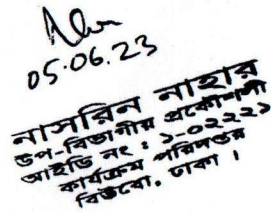 05.06.23
নাসরিন নাহার
উপ-বিভাগীয় প্রকৌশলী
আইডি নং : ১-০২২২১
কার্যক্রম পরিদপ্তর
বিউবো, ঢাকা ।